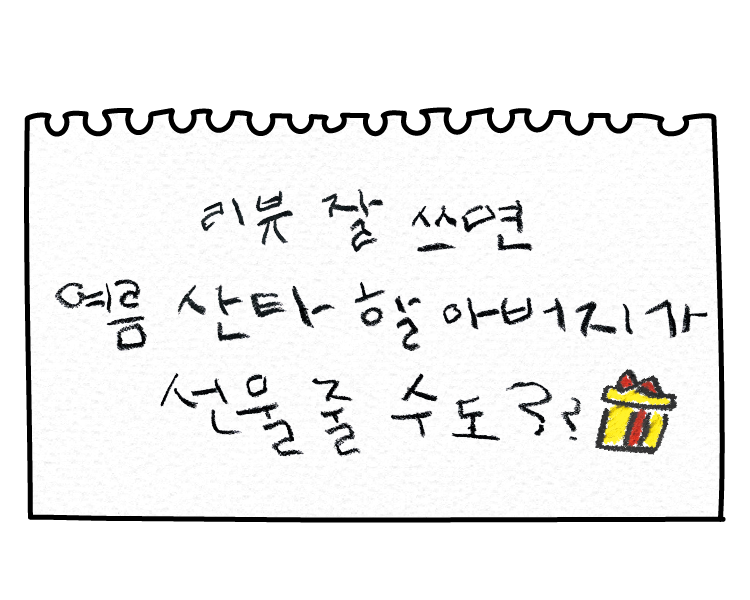 리뷰 잘 쓰면
여름 산타 할아버지가
선물 줄 수도??